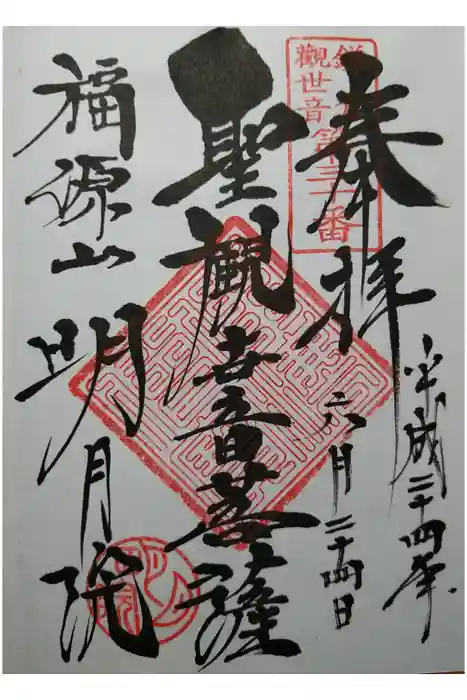 奉拝
平成二十四年
六月二十四日
觀世音第三番
聖観世音菩薩
福源山
明月院